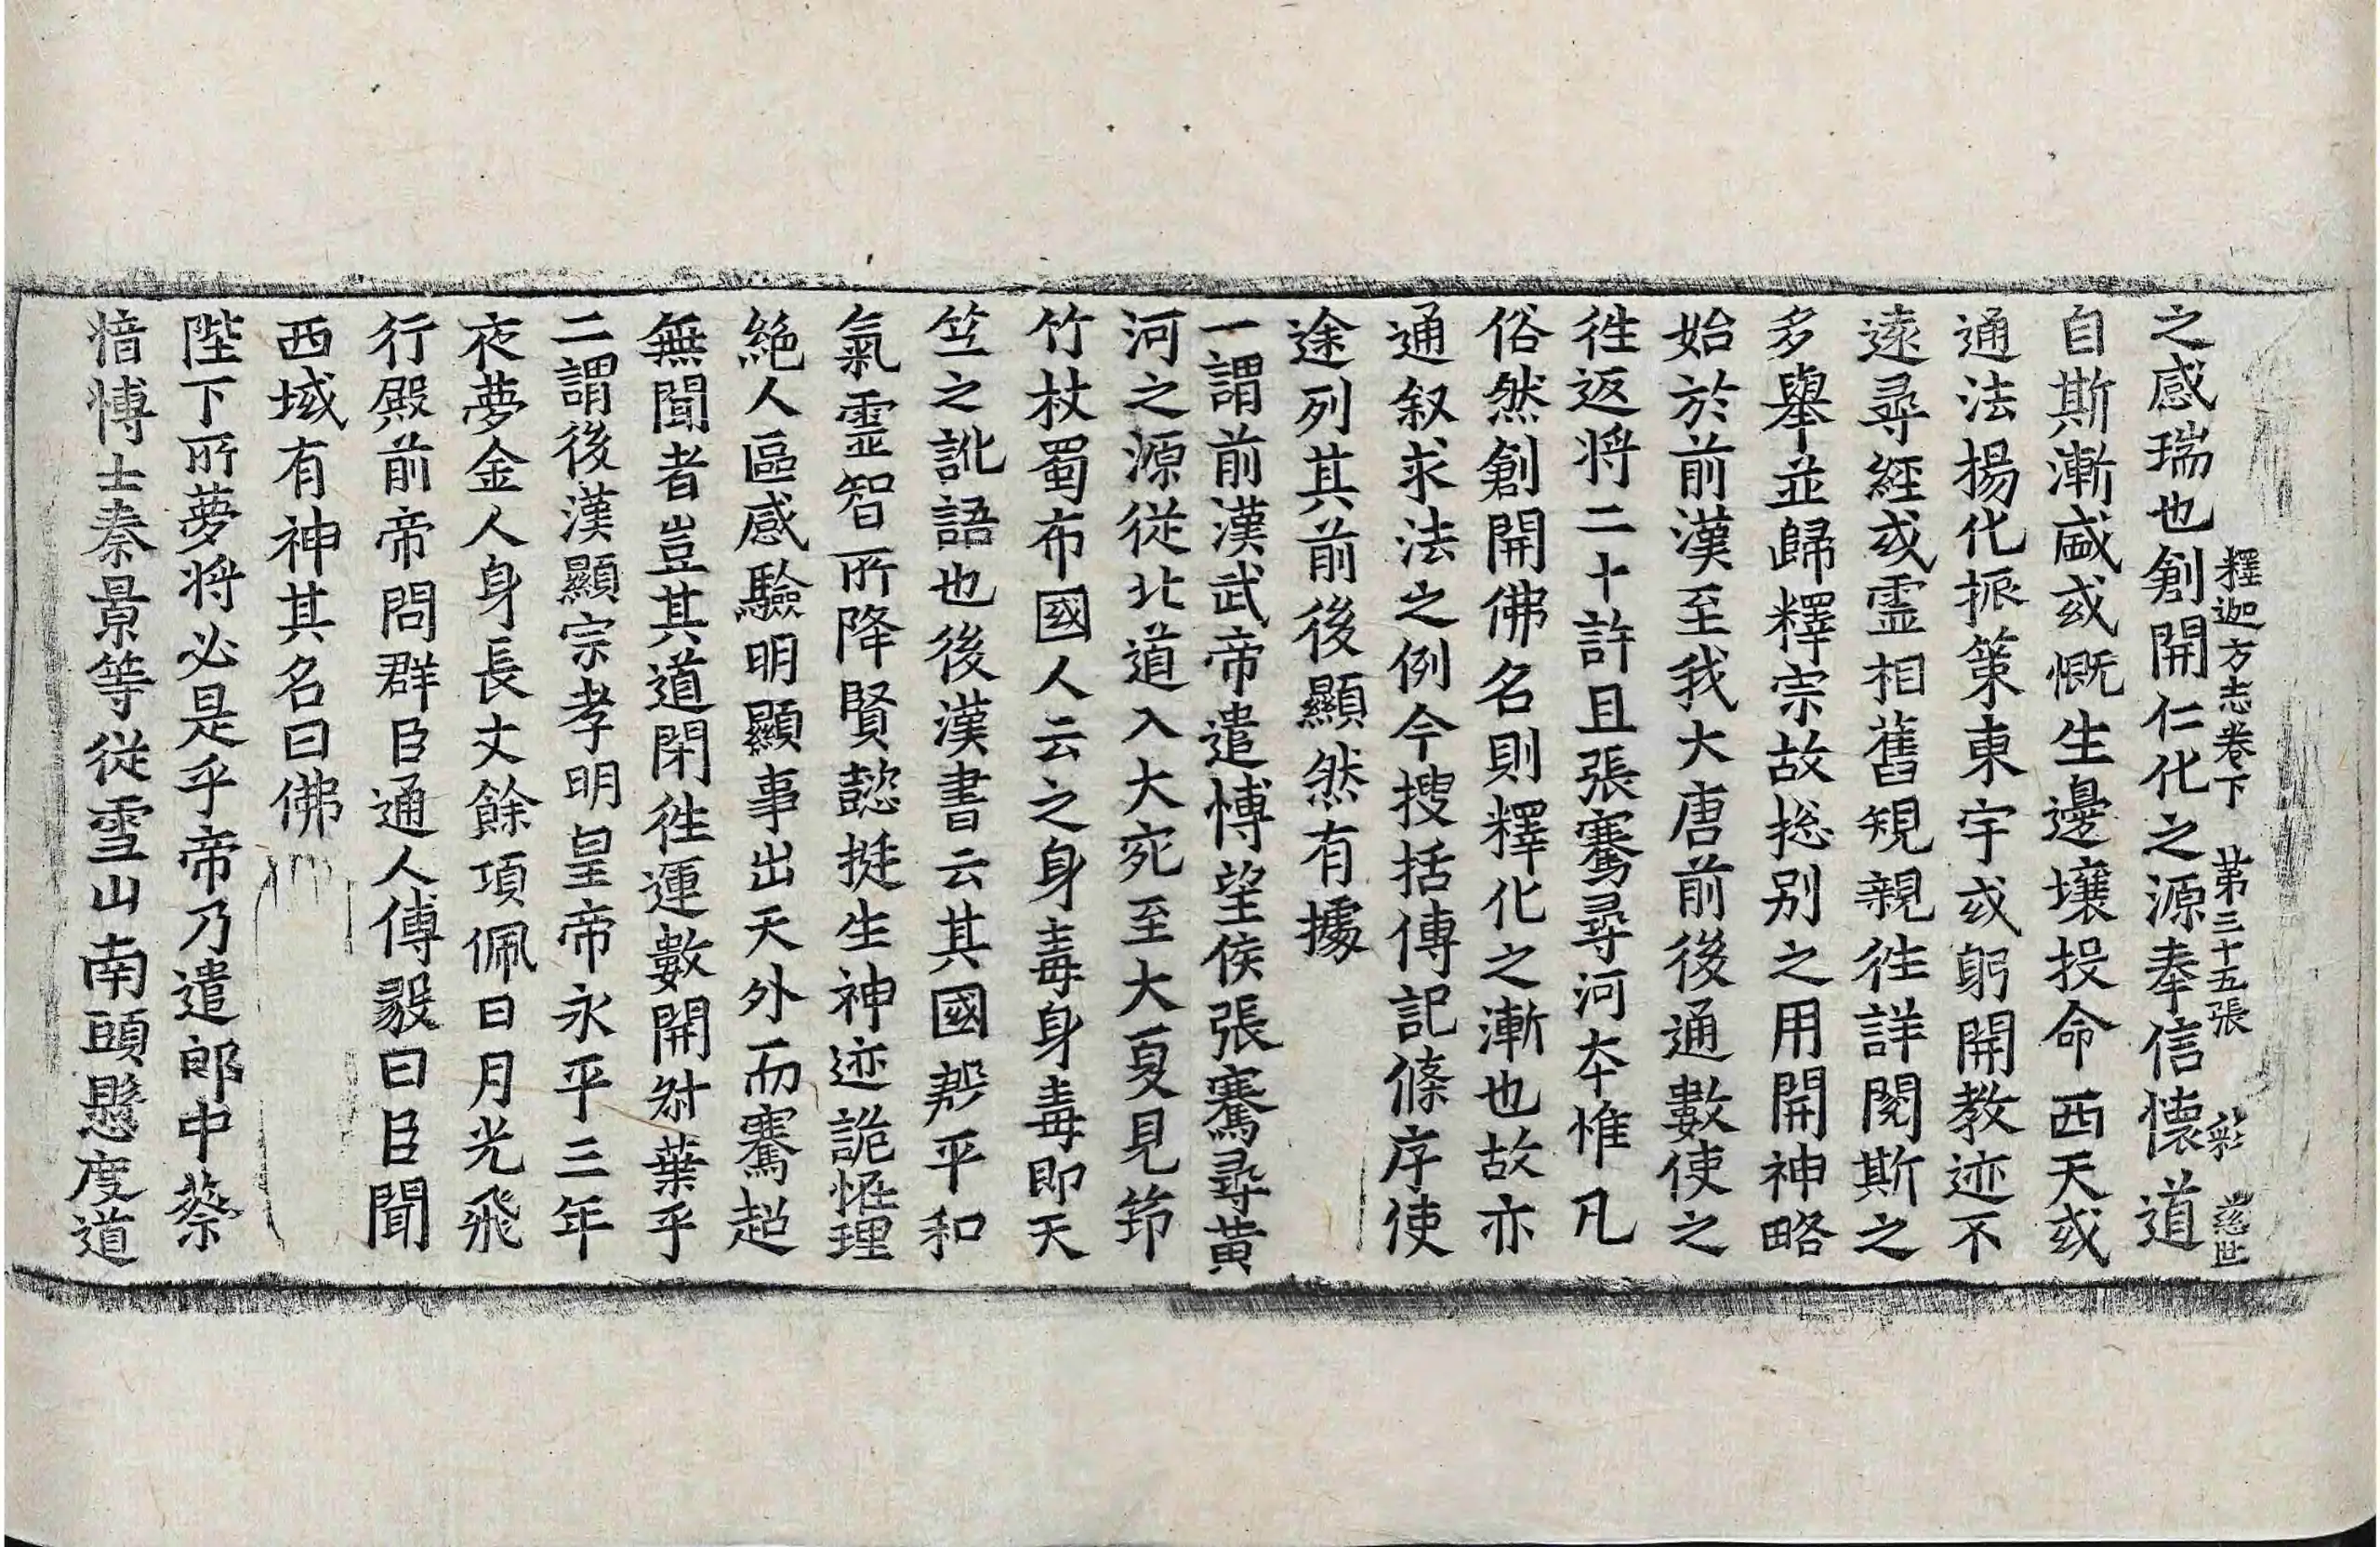 釋迦方志卷下 第三十五張 彩
之感瑞也創開仁化之源奉信懷道
自斯漸盛或慨生邊壤投命西天或
通法揚化振策東宇或躬開教迹不
遠尋經或靈相舊規親往詳閱斯之
多舉並歸釋宗故捴别之用開神略
始於前漢至我大唐前後通數使之
往返將二十許且張騫尋河本惟凡
俗然創開佛名則釋化之漸也故亦
通叙求法之例今搜括傳記條序使
途列其前後顯然有據
一謂前漢武帝遣博望侯張騫尋黄
河之源從北道入大宛至大夏見筇
竹杖蜀布國人云之身毒身毒即天
竺之訛語也後漢書云其國殷平和
氣靈智所降賢懿挺生神迹詭恠理
絶人區感驗明顯事出天外而騫超
無聞者豈其道閉往運數開叔葉乎
二謂後漢顯宗孝明皇帝永平三年
夜夢金人身長丈餘項佩日月光飛
行殿前帝問群臣通人傅毅曰臣聞
西域有神其名曰佛
陛下所夢将必是乎帝乃遣郎中蔡
愔博士秦景等從雪山南頭懸度道